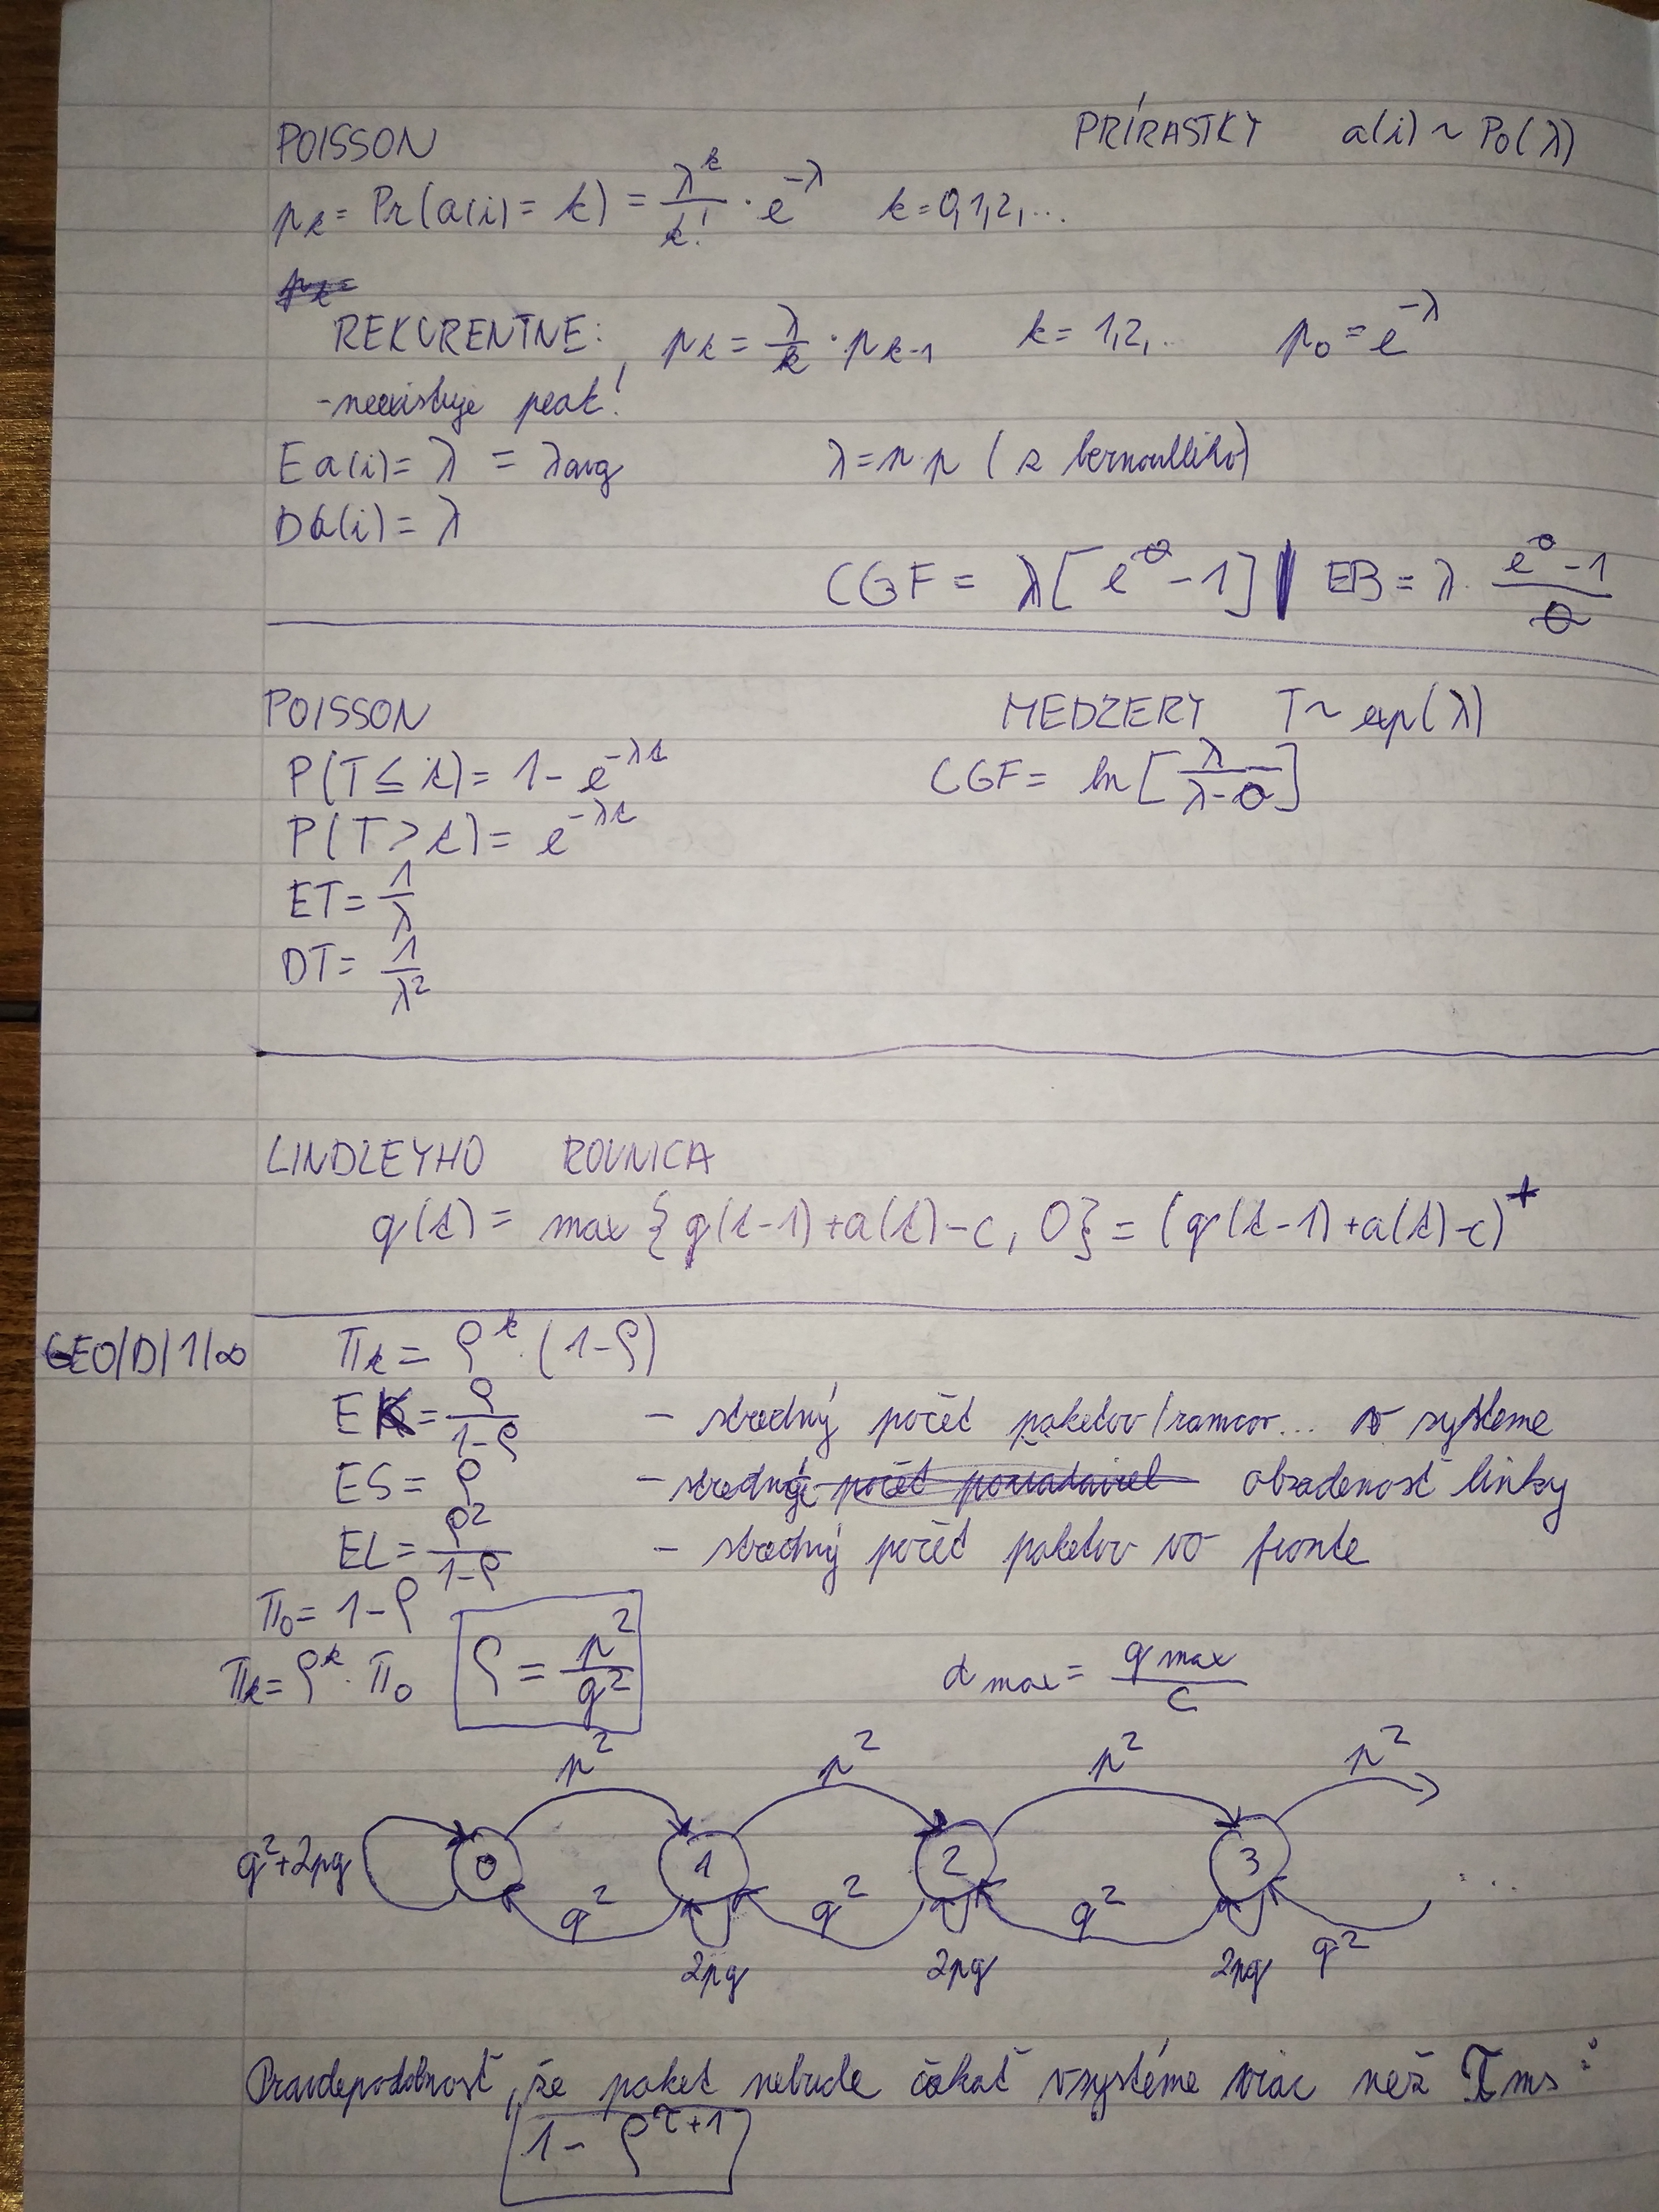 POISSON PRÍRASTKY a(i) ~ Po(λ)
p_k = Pr(a(i) = k) = λ^k / k! · e^-λ k = 0,1,2,...
p_k =
REKURENTNE: p_k = λ/k · p_k-1 k = 1,2,.. p_0 = e^-λ
- neexistuje peak!
E a(i) = λ = λavg λ = n·p (z bernoulliho)
D a(i) = λ
CGF = λ[e^θ - 1] | EB = λ · (e^θ - 1) / θ
POISSON MEDZERY T ~ exp(λ)
P(T ≤ t) = 1 - e^-λt CGF = ln[λ / (λ - θ)]
P(T > t) = e^-λt
ET = 1/λ
DT = 1/λ²
LINDLEYHO ROVNICA
q(t) = max {q(t-1) + a(t) - c, 0} = (q(t-1) + a(t) - c)^+
GEO/D/1/∞ π_k = ρ^k · (1-ρ)
EK = ρ / (1-ρ) - stredný počet paketov/ramcov... v systeme
ES = ρ - stredný počet obsadenosť linky
EL = ρ² / (1-ρ) - stredný počet paketov vo fronte
π_0 = 1-ρ
π_k = ρ^k · π_0 ρ = p² / q² d max = q max / c
p² p² p² p²
q²+2pq 0 1 2 3 ...
q² q² q² q²
2pq 2pq 2pq
Pravdepodobnosť, že paket nebude čakať v systéme viac než τ ms:
1 - ρ^τ+1